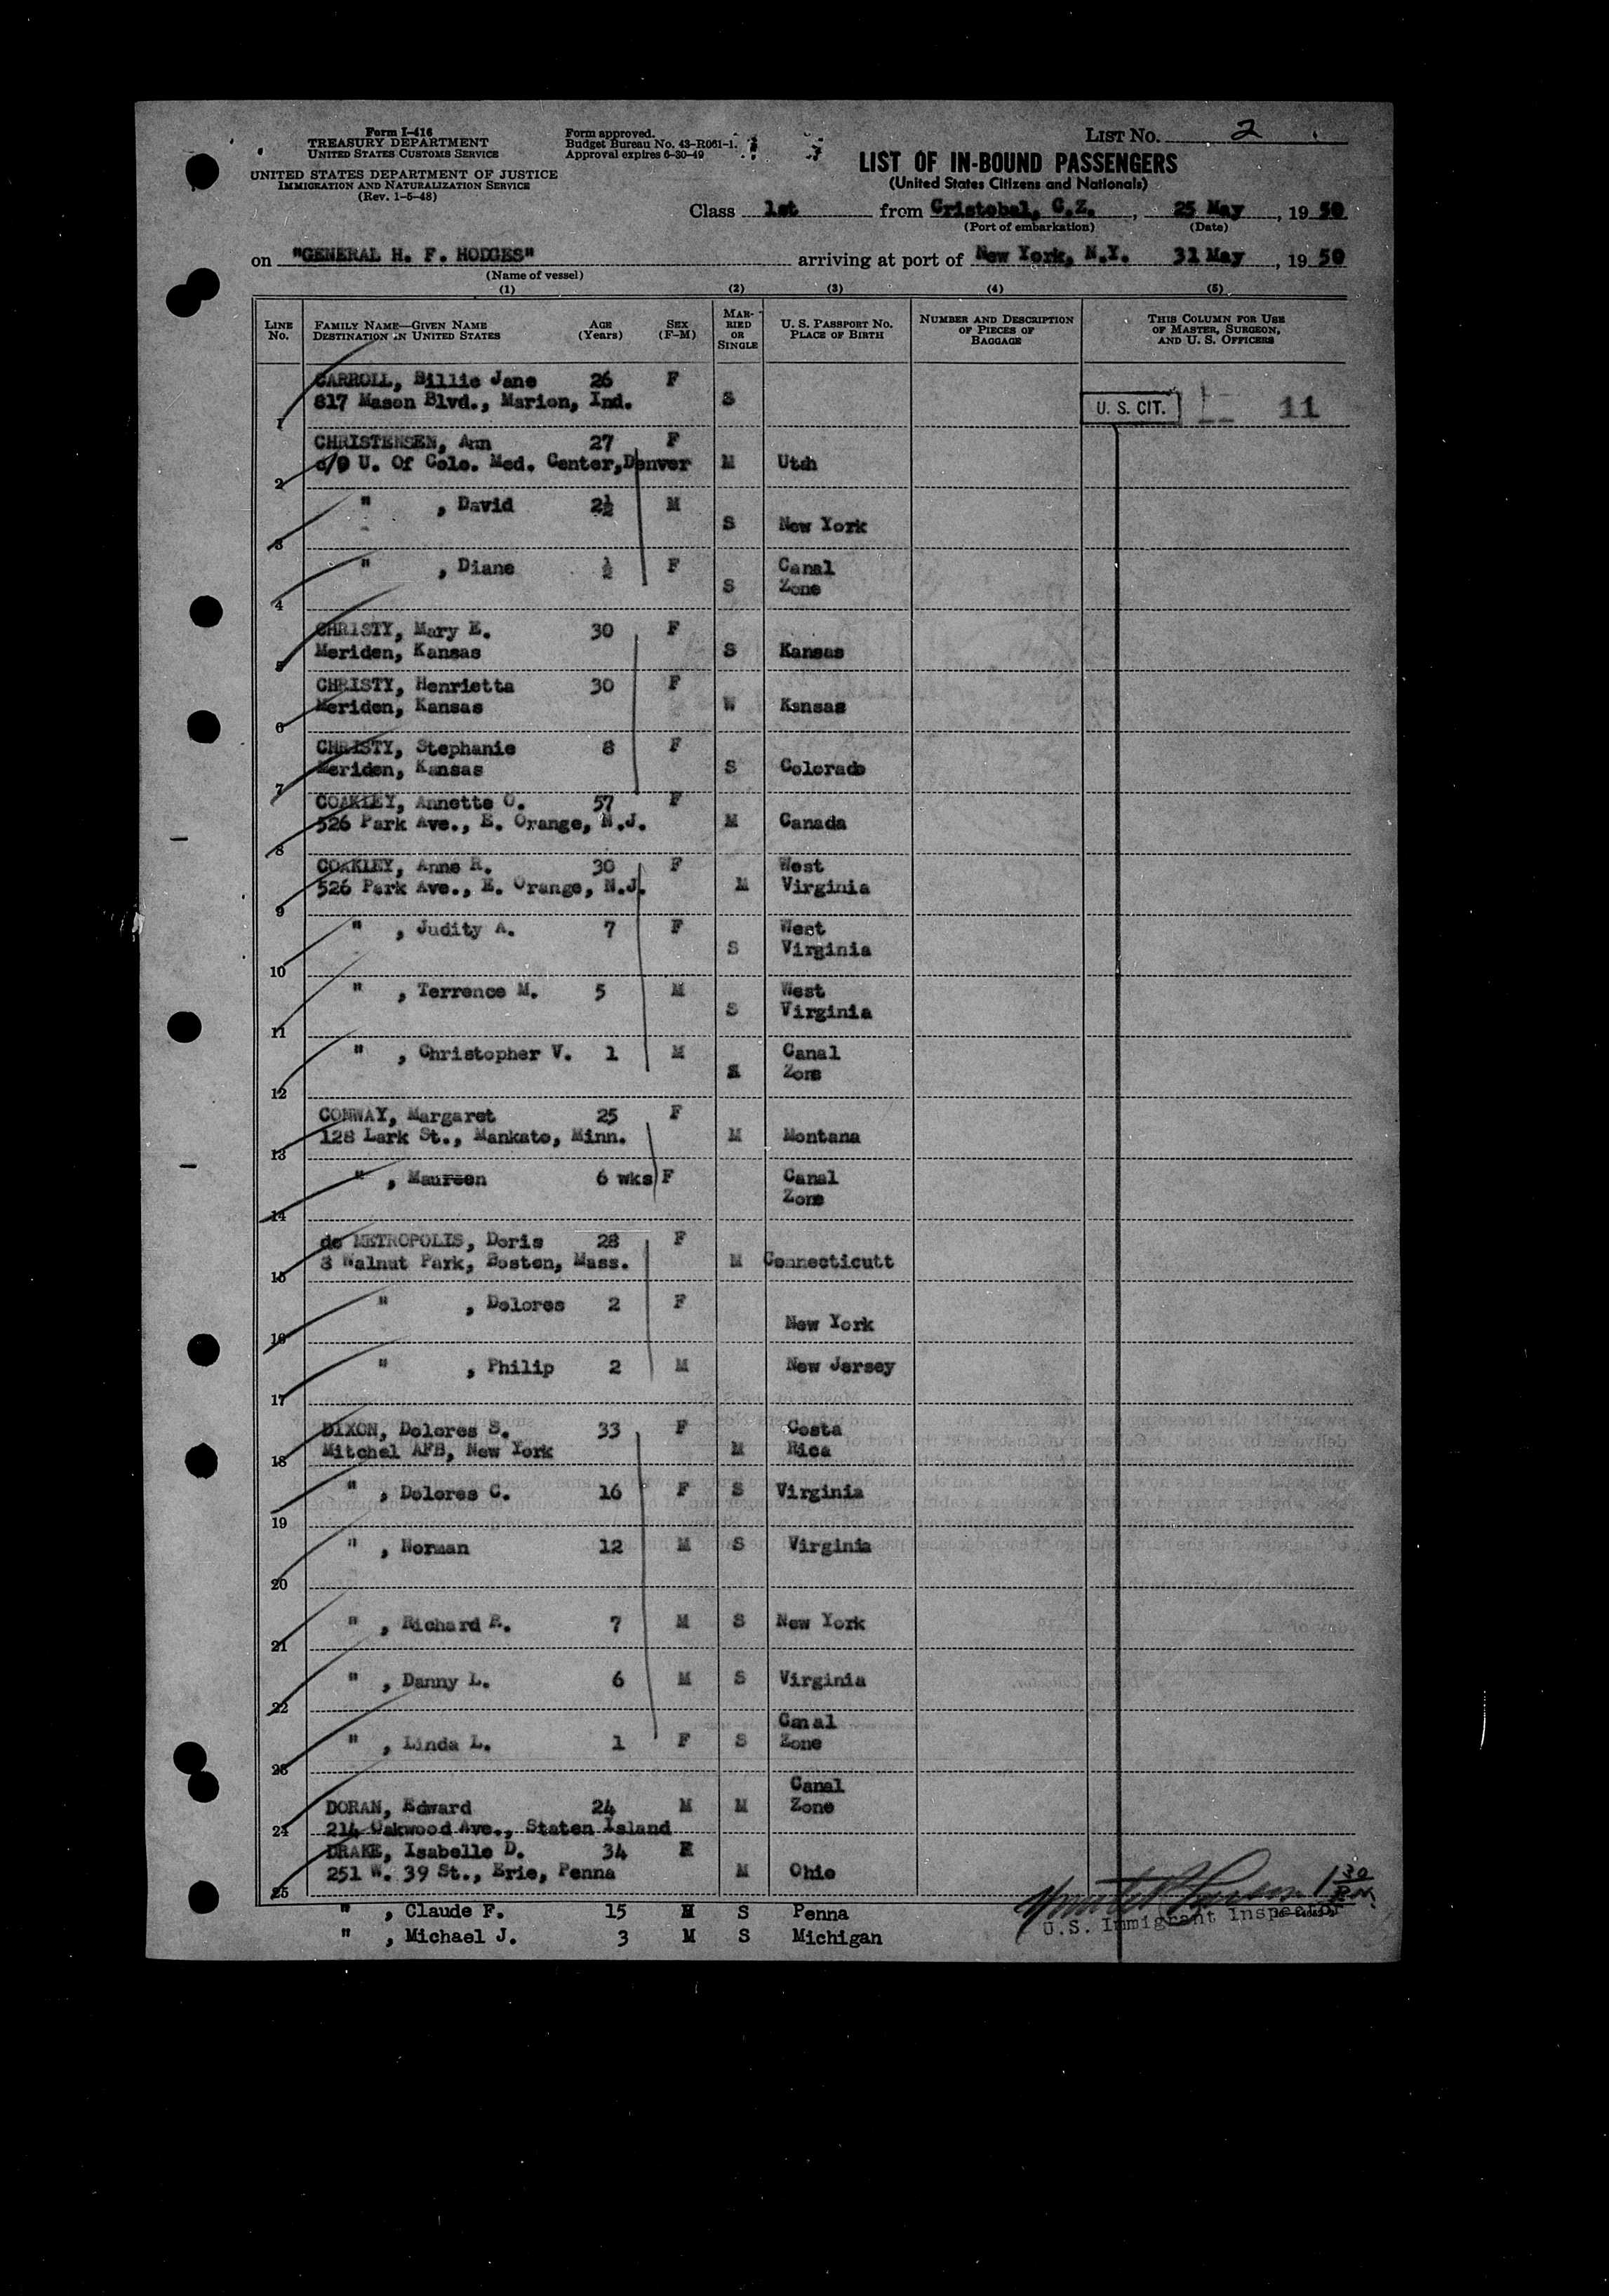 Form I-416
TREASURY DEPARTMENT
UNITED STATES CUSTOMS SERVICE
UNITED STATES DEPARTMENT OF JUSTICE
IMMIGRATION AND NATURALIZATION SERVICE
(Rev. 1-5-48)
Form approved.
Budget Bureau No. 43-R061-1.
Approval expires 6-30-49
LIST No. 2
LIST OF IN-BOUND PASSENGERS
(United States Citizens and Nationals)
Class 1st from Cristobal, C.Z., 25 May, 19 50
(Port of embarkation) (Date)
on "GENERAL H. F. HODGES" arriving at port of New York, N.Y. 31 May, 19 50
(Name of vessel)
(1) (2) (3) (4) (5)
LINE No. FAMILY NAME—GIVEN NAME DESTINATION IN UNITED STATES AGE (Years) SEX (F-M) MARRIED OR SINGLE U. S. PASSPORT No. PLACE OF BIRTH NUMBER AND DESCRIPTION OF PIECES OF BAGGAGE THIS COLUMN FOR USE OF MASTER, SURGEON, AND U. S. OFFICERS
CARROLL, Billie Jane 26 F
1 817 Mason Blvd., Marion, Ind. S U. S. CIT. 11
CHRISTENSEN, Ann 27 F
2 c/o U. Of Colo. Med. Center, Denver M Utah
3 " , David 2½ M S New York
4 " , Diane ½ F S Canal Zone
CHRISTY, Mary E. 30 F
5 Meriden, Kansas S Kansas
CHRISTY, Henrietta 30 F
6 Meriden, Kansas W Kansas
CHRISTY, Stephanie 8 F
7 Meriden, Kansas S Colorado
COAKLEY, Annette O. 57 F
8 526 Park Ave., E. Orange, N.J. M Canada
COAKLEY, Anne R. 30 F West
9 526 Park Ave., E. Orange, N.J. M Virginia
10 " , Judity A. 7 F S West Virginia
11 " , Terrence M. 5 M S West Virginia
12 " , Christopher V. 1 M S Canal Zone
CONWAY, Margaret 25 F
13 128 Lark St., Mankato, Minn. M Montana
14 " , Maureen 6 wks F Canal Zone
de METROPOLIS, Doris 28 F
15 8 Walnut Park, Boston, Mass. M Connecticutt
16 " , Dolores 2 F New York
17 " , Philip 2 M New Jersey
DIXON, Dolores S. 33 F Costa
18 Mitchel AFB, New York M Rica
19 " , Dolores C. 16 F S Virginia
20 " , Norman 12 M S Virginia
21 " , Richard R. 7 M S New York
22 " , Danny L. 6 M S Virginia
23 " , Linda L. 1 F S Canal Zone
DORAN, Edward 24 M M Canal Zone
24 214 Oakwood Ave., Staten Island
DRAKE, Isabelle D. 34 F
25 251 W. 39 St., Erie, Penna M Ohio
" , Claude F. 15 M S Penna
" , Michael J. 3 M S Michigan
1 30 P.M.
U.S. Immigrant Inspector